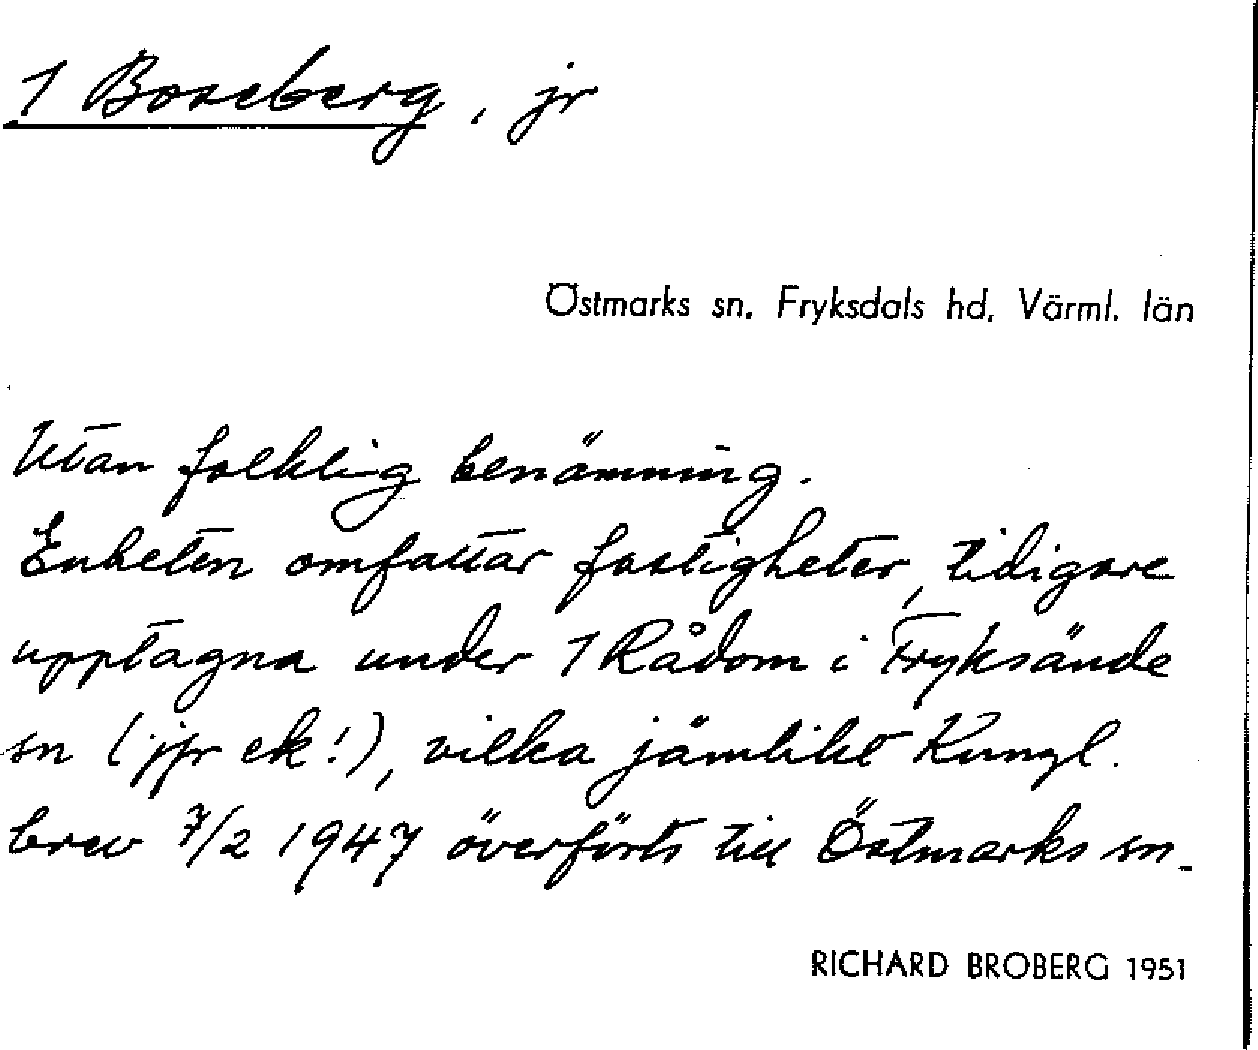 1 Boseberg, jr
Östmarks sn. Fryksdals hd. Värml. län
Utan folklig benämning.
Enheten omfattar fastigheter, tidigare
upptagna under 1 Rådom i Fryksände
sn (jfr ek!), vilka jämlikt Kungl.
brev 7/2 1947 överförts till Östmarks sn.
RICHARD BROBERG 1951